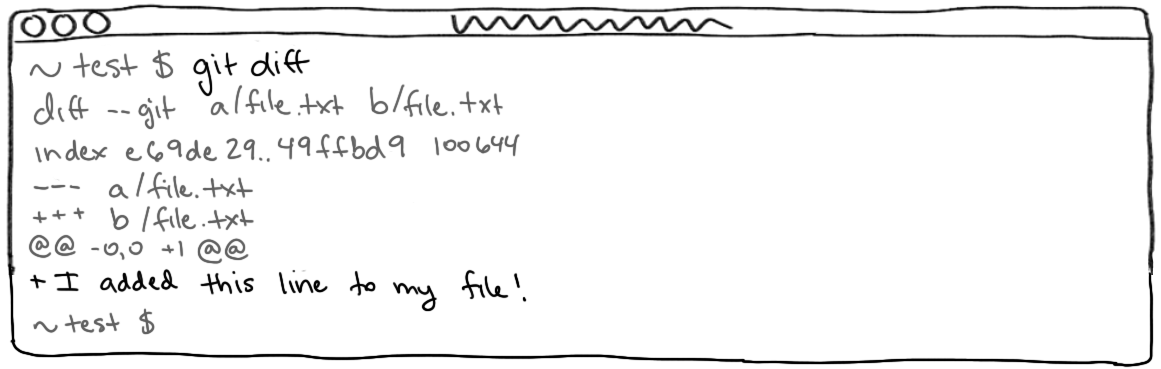 ~ test $ git diff
diff --git a/file.txt b/file.txt
index e69de29..49ffbd9 100644
--- a/file.txt
+++ b/file.txt
@@ -0,0 +1 @@
+ I added this line to my file!
~ test $